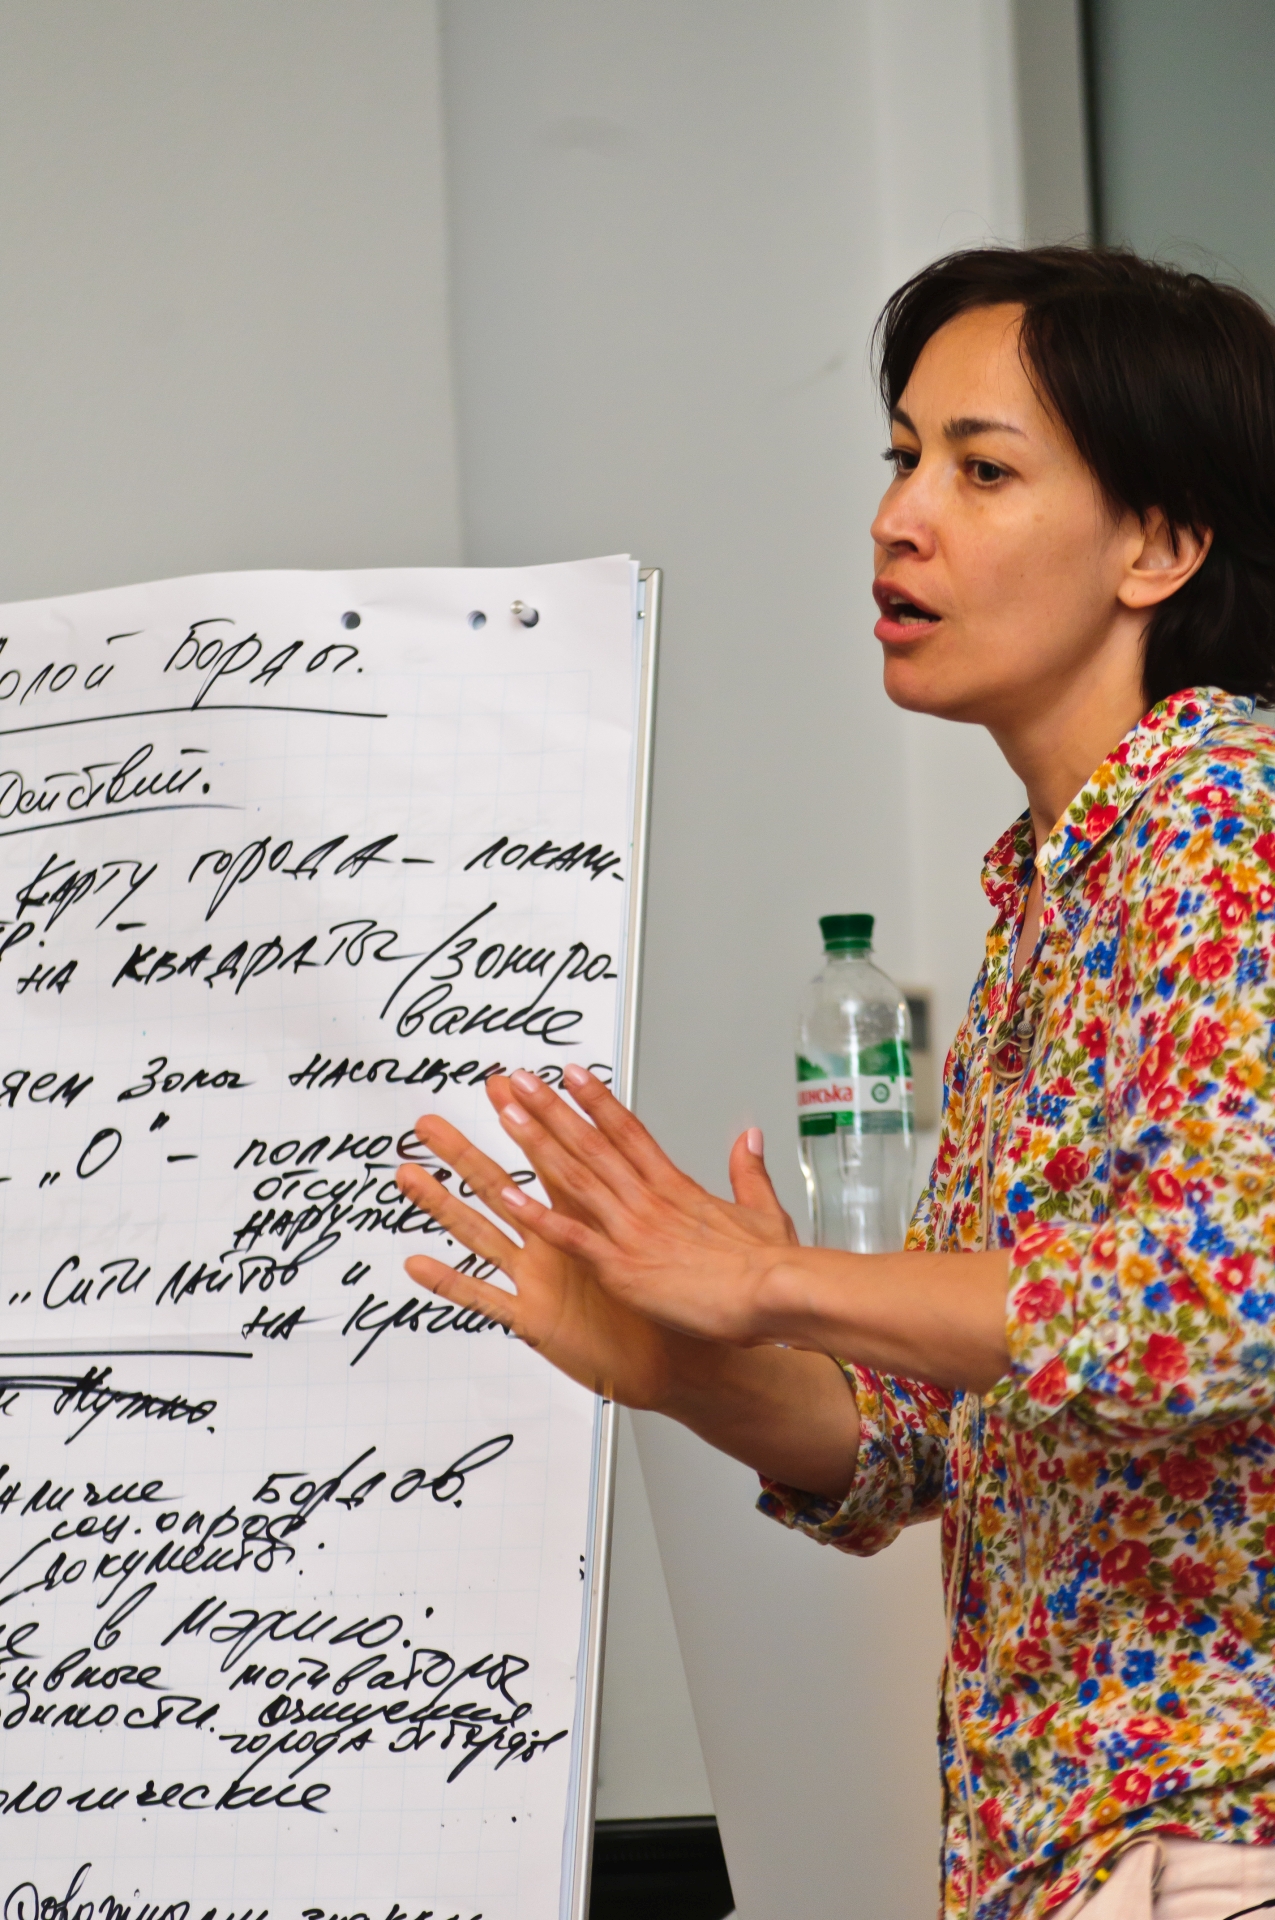 олой Борды.
Действий.
Карту города – локали-
на квадраты / зониро-
вание
яем Зоны насыщенной
– „О" – полное
отсутствие
наружки.
„Сити лайтов и
на крыш
и Нужно.
аличие Бордов.
соц. опрос
/документы.
е в Мэрию:
тивные мотиваторы
димости очищения
города от бордов
ологические
Дорожными знаками
онська